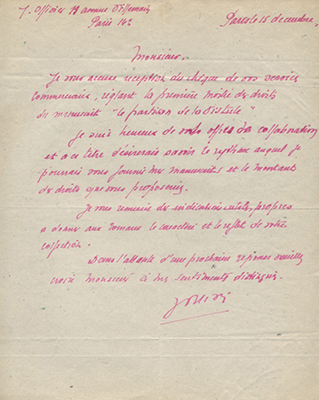 J. Ollivier 11 avenue
Paris 14e
Paris le 15 décembre
Monsieur,
Je vous accuse réception du chèque de vos services
commerciaux, réglant la première moitié des droits
du manuscrit "le partisan de la Bastide"
Je suis heureux de votre offre de collaboration
et à ce titre d'aimerais savoir le rythme auquel je
pourrais vous fournir des manuscrits et le montant
de droits que vous proposeriez.
Je vous remercie des indications utiles, propres
à donner aux romans le caractère et le reflet de votre
collection.
Dans l'attente d'une prochaine réponse veuillez
croire monsieur à mes sentiments distingués.